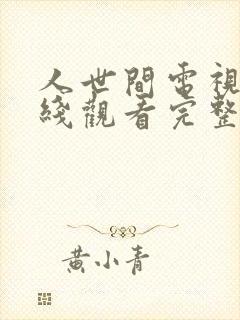 人世間電視
綫觀看完整
黃小青